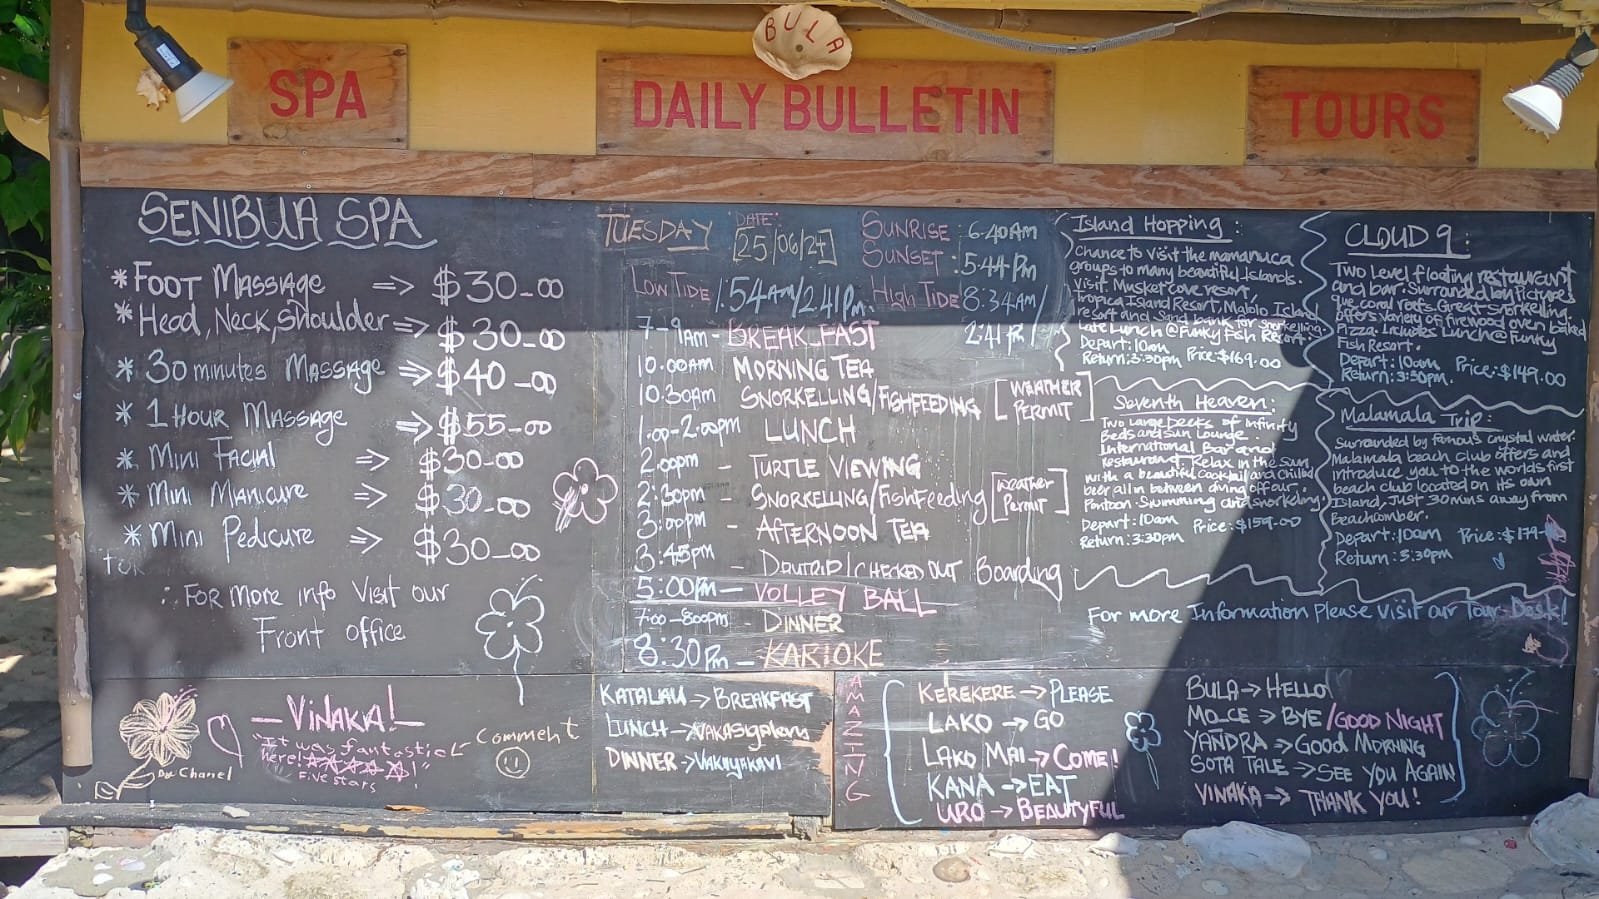 BULA
SPA
DAILY BULLETIN
TOURS
SENIBUA SPA
* FOOT MASSAGE => $30_00
* Head, Neck, Shoulder => $30_00
* 30 minutes MASSAGE => $40_00
* 1 HOUR MASSAGE => $55_00
* MINI FACIAL => $30_00
* MINI MANICURE => $30_00
* MINI PEDICURE => $30_00
FOR
∴ FOR MORE info Visit our
Front office
TUESDAY DATE: [25/06/2
SUNRISE : 6.40AM
SUNSET : 5:44 PM
LOW TIDE 1.54AM/2.41PM. HIGH TIDE 8:34AM/
2:41PM
7-9AM - BREAKFAST
10.00AM MORNING TEA
10.30AM SNORKELLING/FISHFEEDING [WEATHER PERMIT]
1.00-2.00PM LUNCH
2.00pm - TURTLE VIEWING
2:30pm - SNORKELLING/FISHFeeding [Weather Permit]
3:00pm - AFTERNOON TEA
3:45pm - DAYTRIP/CHECKED OUT Boarding
5:00PM - VOLLEY BALL
7:00-800pm - DINNER
8:30PM - KARIOKE
Island Hopping :
Chance to Visit the mamanuca
groups to many beautiful Islands.
Visit Musket cove resort,
Tropica Island Resort, Malolo Island
resort and Sand bank for Snorkelling.
Late Lunch @ Funky Fish Resort.
Depart: 10am
Return: 3:30pm Price: $169.00
Seventh Heaven:
Two Large Decks of Infinity
Beds and Sun Lounge.
International Bar and
restaurant Relax in the Sun
with a beautiful Cocktail and Chilled
beer all in between diving off our
Pontoon. Swimming and Snorkeling.
Depart: 10am Price: $159-00
Return: 3:30pm
CLOUD 9 :
Two Level floating restaurant
and bar. Surranded by pictures
que coral reefs. Great Snorkelling.
offers variety of firewood oven baked
Pizza. Includes Lunch @ Funky
Fish Resort.
Depart: 10am Price: $149.00
Return: 3:30pm.
Malamala Trip:
Surrounded by famous crystal water.
Malamala beach club offers and
introduce you to the worlds first
beach club located on its own
Island, Just 30mins away from
Beachcomber.
Depart: 10am Price: $179-
Return: 3:30pm
For more Information Please Visit our Tour Desk!
— VINAKA! —
"It was fantastic
here! ☆☆☆☆☆"
FIVE stars
← Comment
Chanel
KATALAU → BREAKFAST
LUNCH → VAKASIGALEVU
DINNER → VAKAYAKAVI
AMAZING
KEREKERE → PLEASE
LAKO → GO
LAKO MAI → COME!
KANA → EAT
URO → BEAUTYFUL
BULA → HELLO
MO_CE → BYE/GOOD NIGHT
YANDRA → GOOD MORNING
SOTA TALE → SEE YOU AGAIN
VINAKA → THANK YOU!